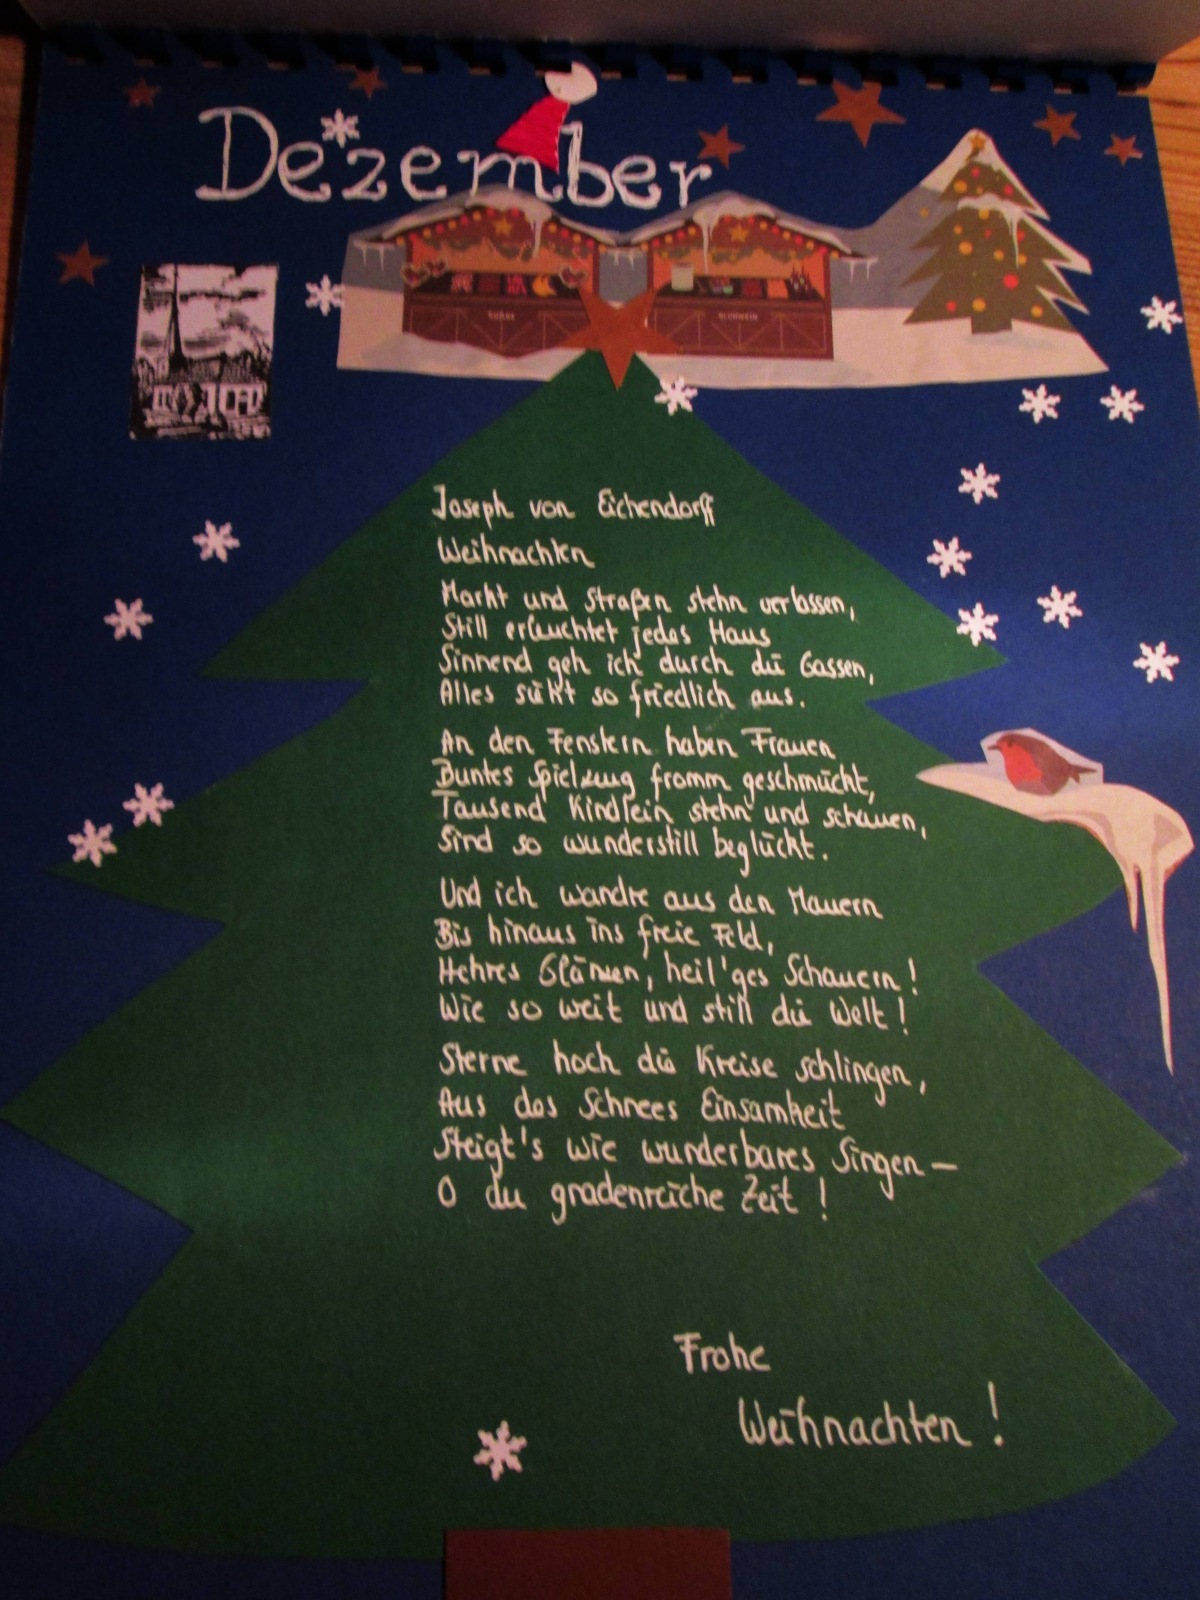 Dezember
GLÜHWEIN
Joseph von Eichendorff
Weihnachten
Markt und Straßen stehn verlassen,
Still erleuchtet jedes Haus
Sinnend geh ich durch die Gassen,
Alles sieht so friedlich aus.
An den Fenstern haben Frauen
Buntes Spielzeug fromm geschmückt,
Tausend Kindlein stehn und schauen,
Sind so wunderstill beglückt.
Und ich wandre aus den Mauern
Bis hinaus ins freie Feld,
Hehres Glänzen, heil'ges Schauern!
Wie so weit und still die Welt!
Sterne hoch die Kreise schlingen,
Aus des Schnees Einsamkeit
Steigt's wie wunderbares Singen—
O du gnadenreiche Zeit!
Frohe
Weihnachten!